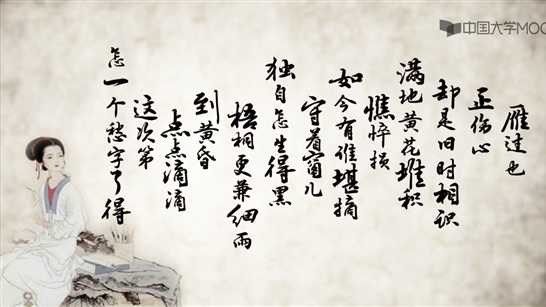 中国大学MOO
雁过也
正伤心
却是旧时相识
满地黄花堆积
憔悴损
如今有谁堪摘
守着窗儿
独自怎生得黑
梧桐更兼细雨
到黄昏
点点滴滴
这次第
怎一个愁字了得